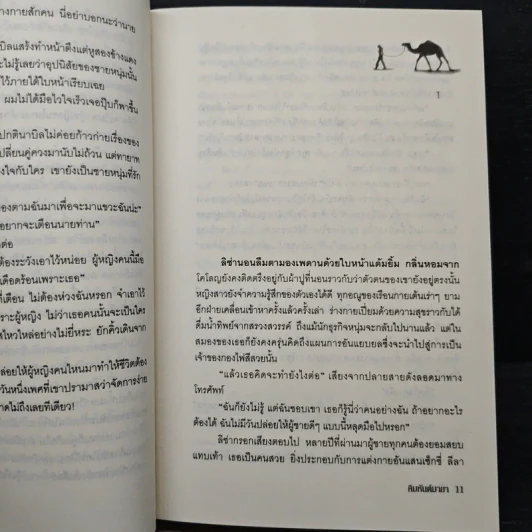 างกายสักคน นี่อย่าบอกนะว่านาย
บิลแสร้งทำหน้าตึงแต่หูสองข้างแดง
ะไม่รู้เลยว่าอุปนิสัยของชายหนุ่มนั้น
ไว้ภายใต้ใบหน้าเรียบเฉย
ผมไม่ได้มือไวใจเร็วเจอปุ๊บก็พาขึ้น
ปกตินาบิลไม่ค่อยก้าวก่ายเรื่องของ
เปลี่ยนคู่ควงมานับไม่ถ้วน แต่ทายาท
งใจกับใคร เขายังเป็นชายหนุ่มที่รัก
องตามฉันมาเพื่อจะมาแขวะฉันน่ะ"
อยากจะเตือนนายท่าน"
ต่อ
ต้องระวังเอาไว้หน่อย ผู้หญิงคนนี้มือ
เดือดร้อนเพราะเธอ"
ที่เตือน ไม่ต้องห่วงฉันหรอก จำเอาไว้
ราะผู้หญิง ไม่ว่าเธอคนนั้นจะเป็นใคร
สไหวไหล่อย่างไม่ยี่หระ ยักคิ้วเดินจาก
ล่อยให้ผู้หญิงคนไหนมาทำให้ชีวิตต้อง
วันหนึ่งเพศที่เขาปรามาสว่าจัดการง่าย
าดไม่ถึงเลยทีเดียว!
1
ลิซ่านอนลืมตามองเพดานด้วยใบหน้าแต้มยิ้ม กลิ่นหอมจาก
โคโลญยังคงติดตรึงอยู่กับผ้าปูที่นอนราวกับว่าตัวตนของเขายังอยู่ตรงนั้น
หญิงสาวยังจำความรู้สึกของตัวเองได้ดี ทุกอณูของเรือนกายเต้นเร่าๆ ยาม
อีกฝ่ายเคลื่อนเข้าหาครั้งแล้วครั้งเล่า ร่างกายเปี่ยมด้วยความสุขราวกับได้
ดื่มน้ำทิพย์จากสรวงสวรรค์ ถึงแม้นักธุรกิจหนุ่มจะกลับไปนานแล้ว แต่ใน
สมองของเธอก็ยังคงครุ่นคิดถึงแผนการอันแยบยลซึ่งจะนำไปสู่การเป็น
เจ้าของกองไฟสีสวยนั้น
"แล้วเธอคิดจะทำยังไงต่อ" เสียงจากปลายสายดังลอดมาทาง
โทรศัพท์
"ฉันก็ยังไม่รู้ แต่ฉันชอบเขา เธอก็รู้นี่ว่าคนอย่างฉัน ถ้าอยากอะไร
ต้องได้ ฉันไม่มีวันปล่อยให้ผู้ชายดีๆ แบบนี้หลุดมือไปหรอก"
ลิซ่ากรอกเสียงตอบไป หลายปีที่ผ่านมาผู้ชายทุกคนต้องยอมสยบ
แทบเท้า เธอเป็นคนสวย ยิ่งประกอบกับการแต่งกายอันแสนเซ็กซี่ ลีลา
คิมหันต์มายา 11